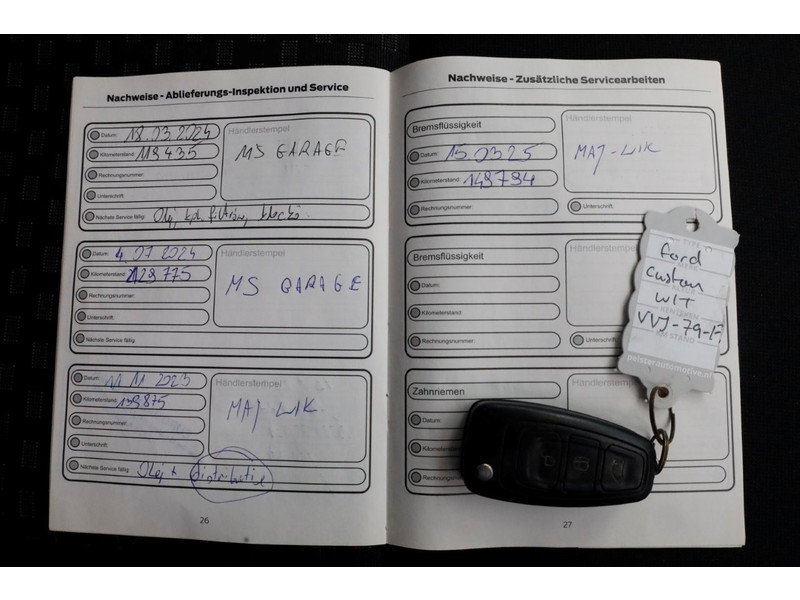 Nachweise - Ablieferungs-Inspektion und Service
Datum: 18.03.2024
Händlerstempel
Kilometerstand: 118435
MS GARAGE
Rechnungsnummer:
Unterschrift:
Nächste Service fällig:
Datum: 4.07 2024
Händlerstempel
Kilometerstand: 128775
MS GARAGE
Rechnungsnummer:
Unterschrift:
Nächste Service fällig:
Datum: 11.11 2023
Händlerstempel
Kilometerstand: 138875
MAJ WIK
Rechnungsnummer:
Unterschrift:
Nächste Service fällig: Olej + distributie
26
Nachweise - Zusätzliche Servicearbeiten
Bremsflüssigkeit
Händlerstempel
Datum: 15.03.25
MAJ-WIK
Kilometerstand: 148794
Rechnungsnummer:
Unterschrift:
Bremsflüssigkeit
Datum:
Kilometerstand:
Rechnungsnummer:
Unterschrift:
Zahnriemen
Händlerstempel
Datum:
Kilometerstand:
Rechnungsnummer:
27
Ford
Custom
WIT
KENTEKEN
VVJ-79-F
KM STAND
pelsterautomotive.nl